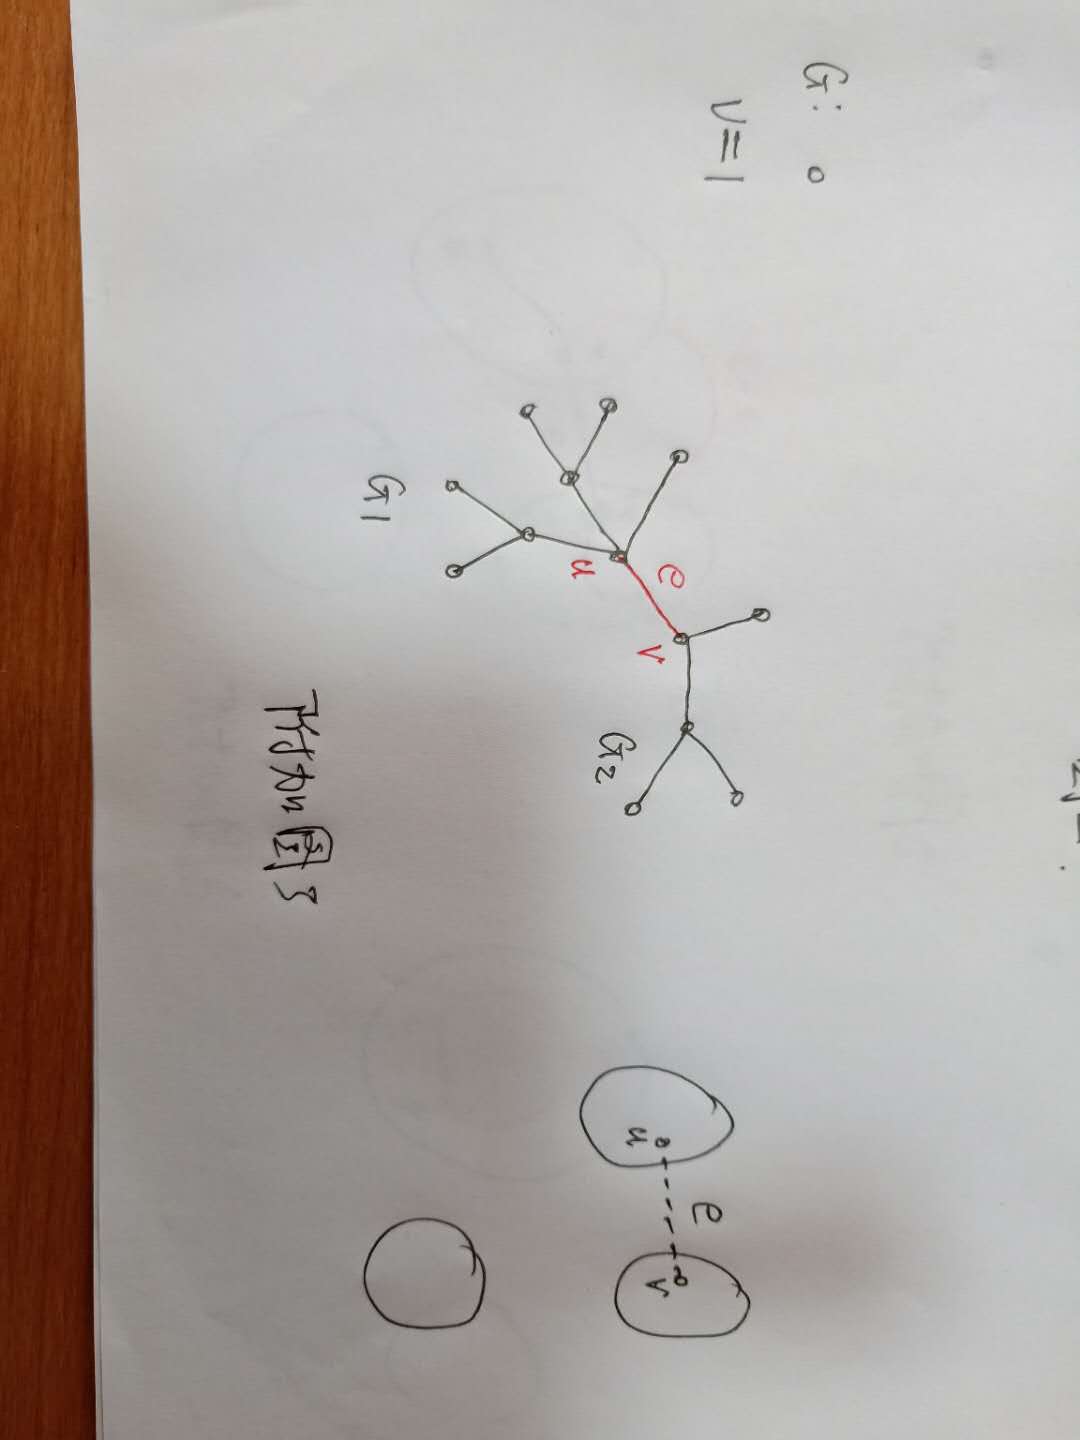 G:
ν=1
e
v
u
G2
G1
e
u
v
附加图3